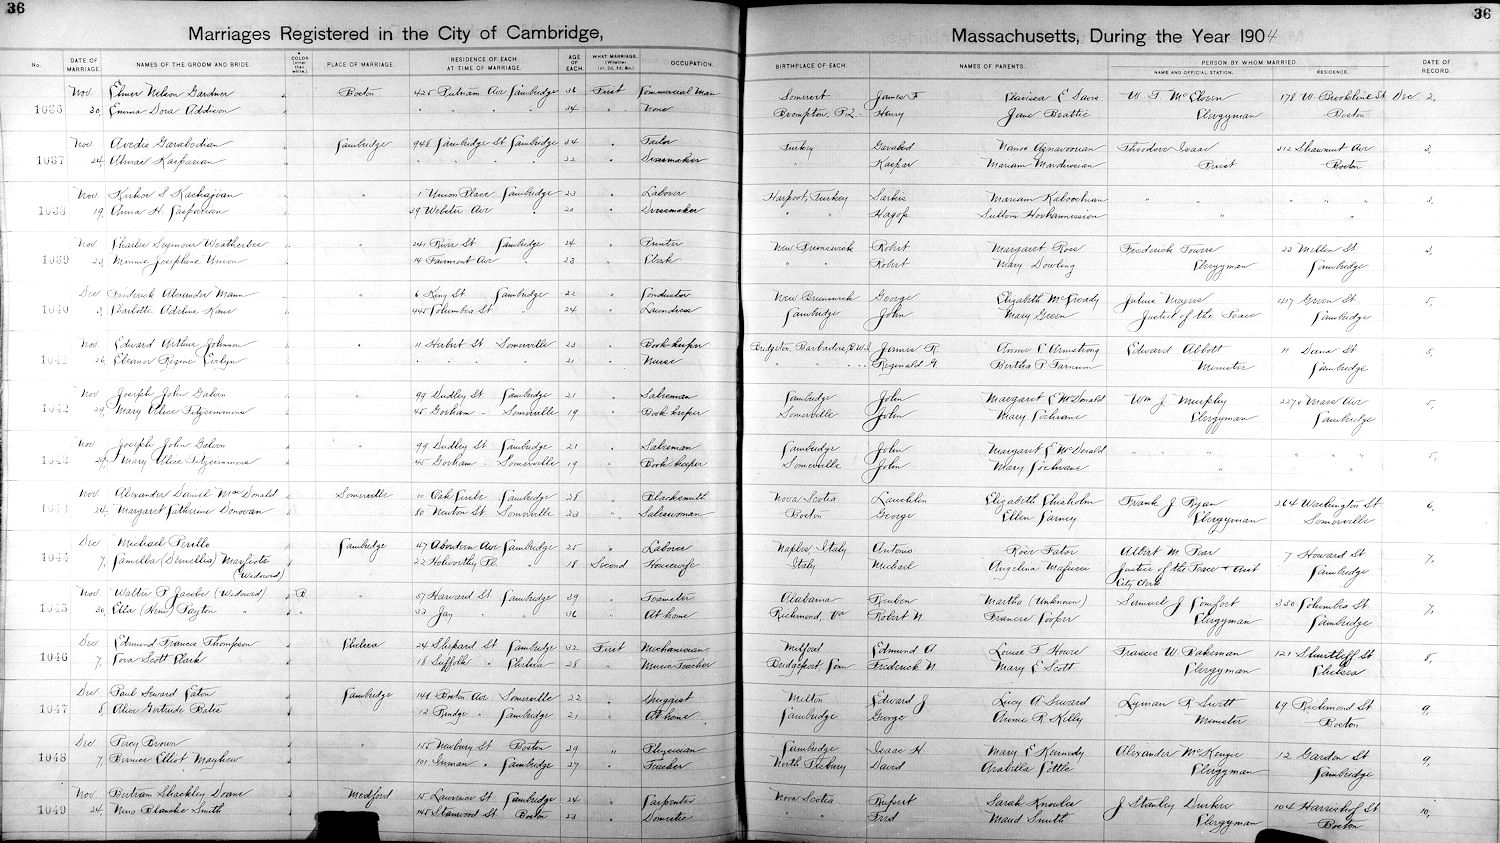 36
36
Marriages Registered in the City of Cambridge,
Massachusetts, During the Year 1904
No.
DATE OF MARRIAGE.
NAMES OF THE GROOM AND BRIDE.
COLOR (other than white.)
PLACE OF MARRIAGE.
RESIDENCE OF EACH AT TIME OF MARRIAGE.
AGE OF EACH.
WHAT MARRIAGE. (Whether 1st, 2d, 3d, &c.)
OCCUPATION.
BIRTHPLACE OF EACH.
NAMES OF PARENTS.
PERSON BY WHOM MARRIED.
NAME AND OFFICIAL STATION.
RESIDENCE.
DATE OF RECORD.
1036 Nov. Elmer Nelson Gardner " Boston 425 Putnam Ave Cambridge 36 First Commercial Man Somerset James F Clarissa E Davis W. T. McElveen 178 W. Brookline St Dec 2,
30, Emma Dora Addison " " " " 34 " None Brompton, P.Q. Henry Jane Beattie Clergyman Boston
1037 Nov Avedis Garabedian " Cambridge 948 Cambridge St Cambridge 24 " Tailor Turkey Garabed Theodore Isaac 212 Shawmut Ave 3,
24, Almas Kasparian " " " " 22 " Dressmaker " Kaspar Mariam Priest Boston
1038 Nov Kirkor S " " 1 Union Place Cambridge 23 " Laborer Harpoot, Turkey Sarkis Mariam " " " " 3,
19, Anna H Casparian " 29 Webster Ave " 20 " Dressmaker " " Hagop Sultom Hovhannesian " "
1039 Nov Charlie Seymour Weatherbee " " 241 River St Cambridge 24 " Printer New Brunswick Robert Margaret Ross Frederick Towers 23 Mellen St 3,
23, Minnie Josephine Union " 14 Fairmont Ave " 23 " Clerk " " Robert Mary Dowling Clergyman Cambridge
1040 Dec Frederick Alexander Mann " " 6 King St Cambridge 22 " Conductor New Brunswick George Elizabeth McCready Julius Meyers 417 Green St 5,
3, Charlotte Adeline Kane " 445 Columbia St " 24 " Laundress Cambridge John Mary Green Justice of the Peace Cambridge
1041 Nov. Edward Arthur Johnson " " 11 Herbert St Somerville 23 " Book-keeper Bridgeton, Barbadoes, B.W.I. James R. Annie E Armstrong Edward Abbott 11 Dana St 5,
26, Eleanor Regene Evelyn " " " " 21 " Nurse " " " Reginald G. Bertha P. Farnum Minister Cambridge
1042 Nov Joseph John Galvin " " 99 Dudley St Cambridge 21 " Salesman Cambridge John Margaret E McDonald Wm J Murphy 2270 Mass Ave 5,
29, Mary Alice Fitzsimmons " 45 Gorham " Somerville 19 " Book-keeper Somerville John Mary Cochrane Clergyman Cambridge
1043 Nov Joseph John Galvin " " 99 Dudley St Cambridge 21 " Salesman Cambridge John Margaret E McDonald " " " " " " 5,
29, Mary Alice Fitzsimmons " 45 Gorham " Somerville 19 " Book-keeper Somerville John Mary Cochrane " "
Nov Alexander Daniel MacDonald " Somerville 10 Oak Circle Cambridge 28 " Blacksmith Nova Scotia Lauchlen Elizabeth Chisholm Frank J Ryan 264 Washington St 6,
24, Margaret Catherine Donovan " 80 Newton St Somerville 23 " Saleswoman Boston George Ellen Carney Clergyman Somerville
1044 Dec Michael Perillo " Cambridge 47 Aberdeen Ave Cambridge 25 " Laborer Naples, Italy Antonio Albert M. Pear 7 Howard St 7,
7, Camella (Demellia) (Widowed) " 22 Holworthy Pl. " 18 Second Housewife Italy Michael Angelina Justice of the Peace & Asst City Clerk Cambridge
1045 Nov Walter P Jacobs (Widowed) " 57 Harvard St Cambridge 39 " Teamster Alabama Reubon Martha (Unknown) Samuel J Comfort 330 Columbia St 7,
30, Ella (Hem) Peyton " 33 Jay " 36 " At home Richmond, Va Robert N Frances Cooper Clergyman Cambridge
1046 Dec Edmund Francis Thompson " Chelsea 24 Shepard St Cambridge 32 First Mechanician Milford Edmund A Louise F Howe Francis W Bakeman 121 Shurtleff St 8,
7, Cora Scott Clark " 18 Suffolk " Chelsea 28 " Music Teacher Bridgeport Conn Frederick N Mary E Scott Clergyman Chelsea
1047 Dec Paul Seward Eaton " Cambridge 148 Boston Ave Somerville 22 " Druggist Milton Edward J Lucy A Seward Lyman R Swett 69 Richmond St 9,
8, Alice Gertrude Bates " 12 Rindge " Cambridge 21 " At home Cambridge George Annie R Kelley Minister Boston
1048 Dec Percy Brown " " 155 Newbury St Boston 29 " Physician Cambridge Isaac H Mary E Kennedy Alexander McKenzie 12 Garden St 9,
7, Bernice Elliot Mayhew " 101 Inman " Cambridge 27 " Teacher North Tisbury David Arabella Cottle Clergyman Cambridge
1049 Nov Bertram Shackley Doane " Medford 15 Lawrence St Cambridge 24 " Carpenter Nova Scotia Rupert Sarah Knowles J Stanley Durkee 104 Harrishof St 10,
24, Nina Blanche Smith " 145 Stanwood St Boston 23 " Domestic " " Fred Maud Smith Clergyman Boston